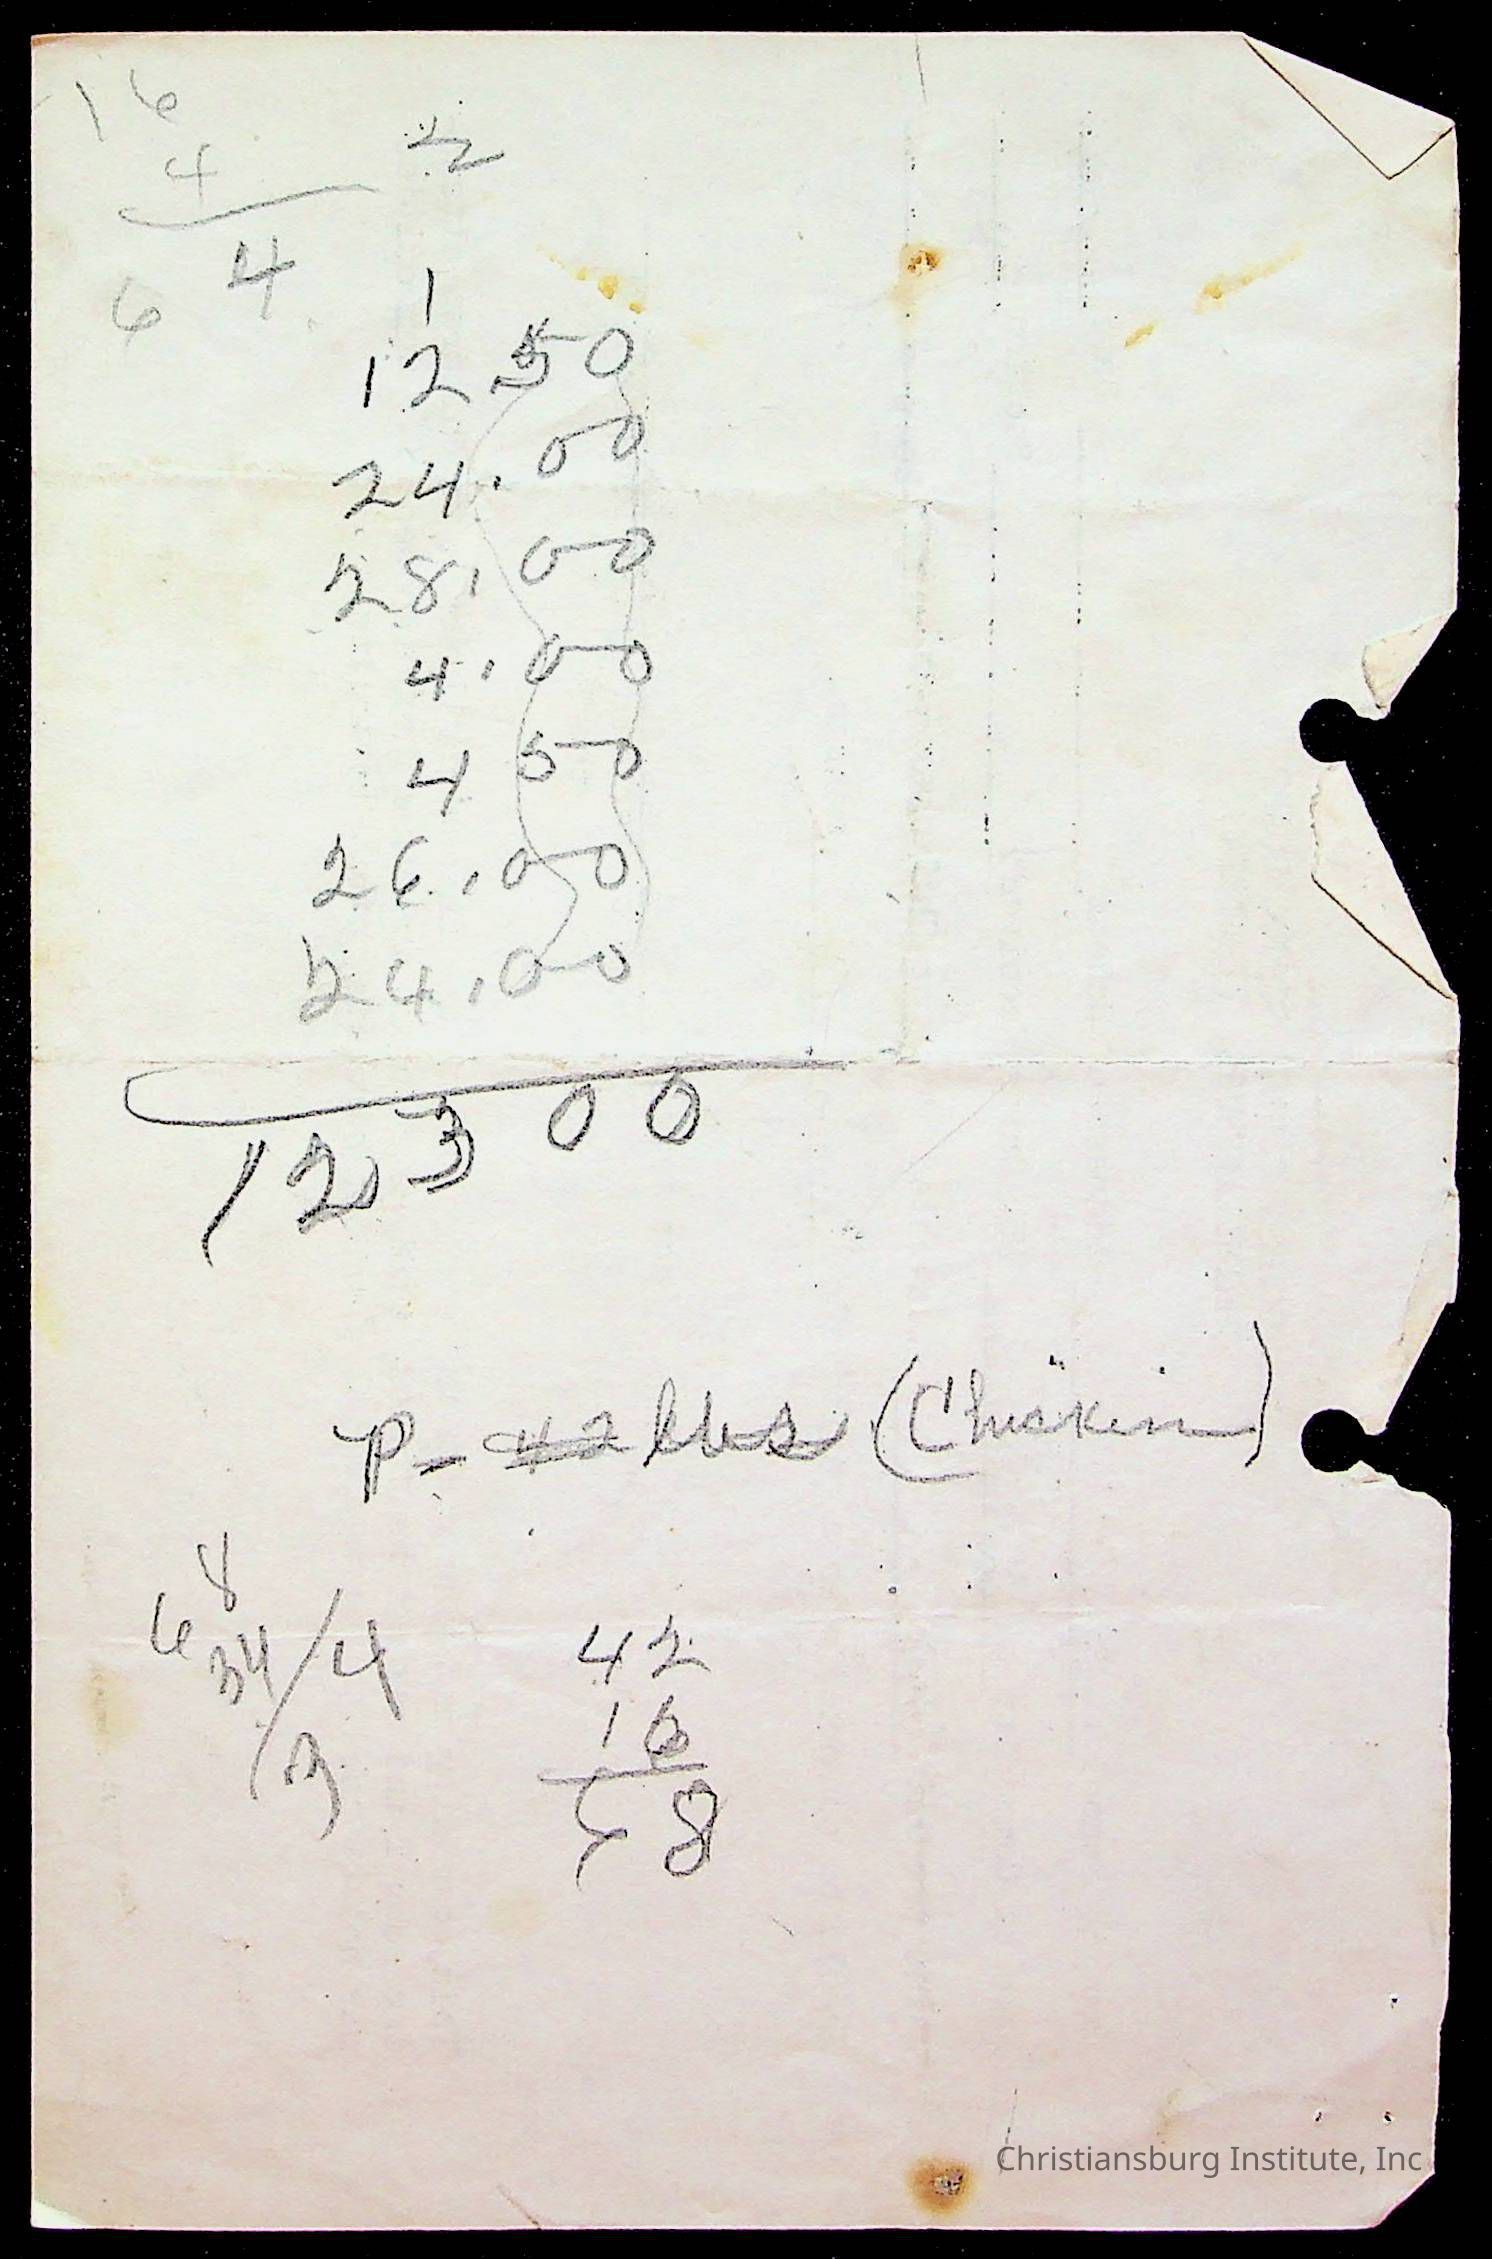 16
4
64
2
1
12.50
24.00
28.00
4.00
4 50
26.00
24.00
123 00
P- 42 lbs (Chicken)
8
6
34/4
3
42
16
58
Christiansburg Institute, Inc